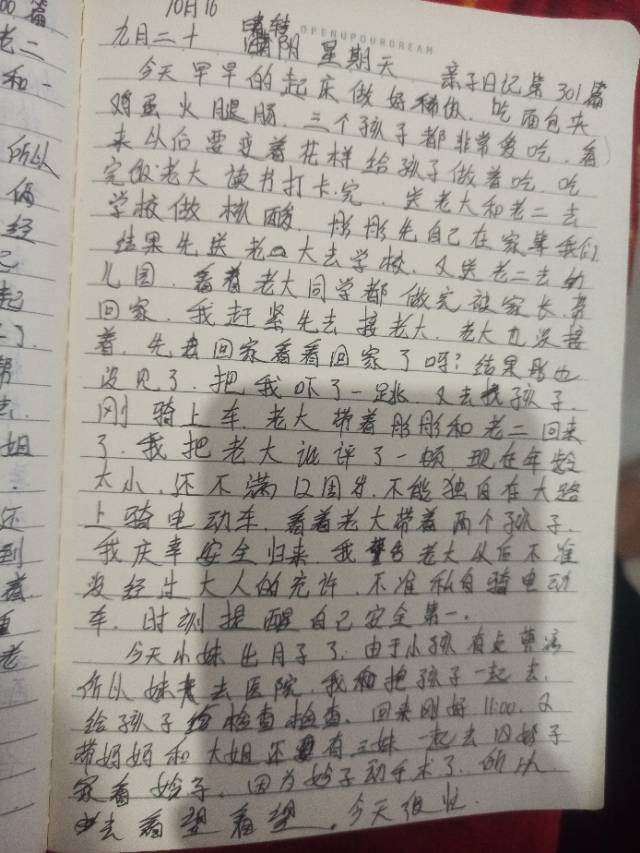 10月16
九月二十 晴转阴 星期天 亲子日记第301篇
OPENUPOURDREAM
今天早早的起床做好稀饭.吃面包夹
鸡蛋火腿肠.三个孩子都非常爱吃.看
来从后要变着花样给孩子做着吃.吃
完饭老大读书打卡完.送老大和老二去
学校做核酸.彤彤先自己在家等我们
结果先送老大去学校.又送老二去幼
儿园.看着老大同学都做完被家长带
回家.我赶紧先去接老大.老大也没接
着.先去回家看看回家了吗?结果彤也
没见了.把我吓了一跳又去找孩子.
刚骑上车.老大带着彤彤和老二回来
了.我把老大训评了一顿现在年龄
太小.还不满12周岁.不能独自在大路
上骑电动车.看着老大带着两个孩子.
我庆幸安全归来.我警告老大从后不准
没经过大人的允许.不准私自骑电动
车.时刻提醒自己安全第一.
今天小妹出月子了.由于小孩有点
所以妹去医院.我和抱孩子一起去.
给孩子检查检查.回来刚好11:00.又
带妈妈和大姐还有三妹一起去妗子
家看妗子.因为妗子动手术了.所以
去看望看望.今天很忙.
00篇
老二
和一
所以
俩
经
己
起
了.
帮
姐
还
到
着
重
老